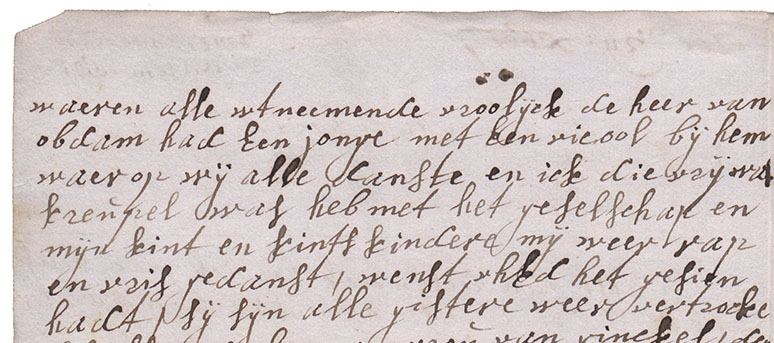 waeren alle wtneemende vroolyck de heer van
obdam had Een jonge met Een viool bÿ hem
waer op wÿ alle danste en ick die vrÿ wa
kreupel was heb met het geselschap en
mÿn kint en kintskindere mÿ weer rap
en vris gedanst, wenst uhEd het gesien
hadt, sÿ sÿn alle gistere weer vertrocke
van rinckel, de